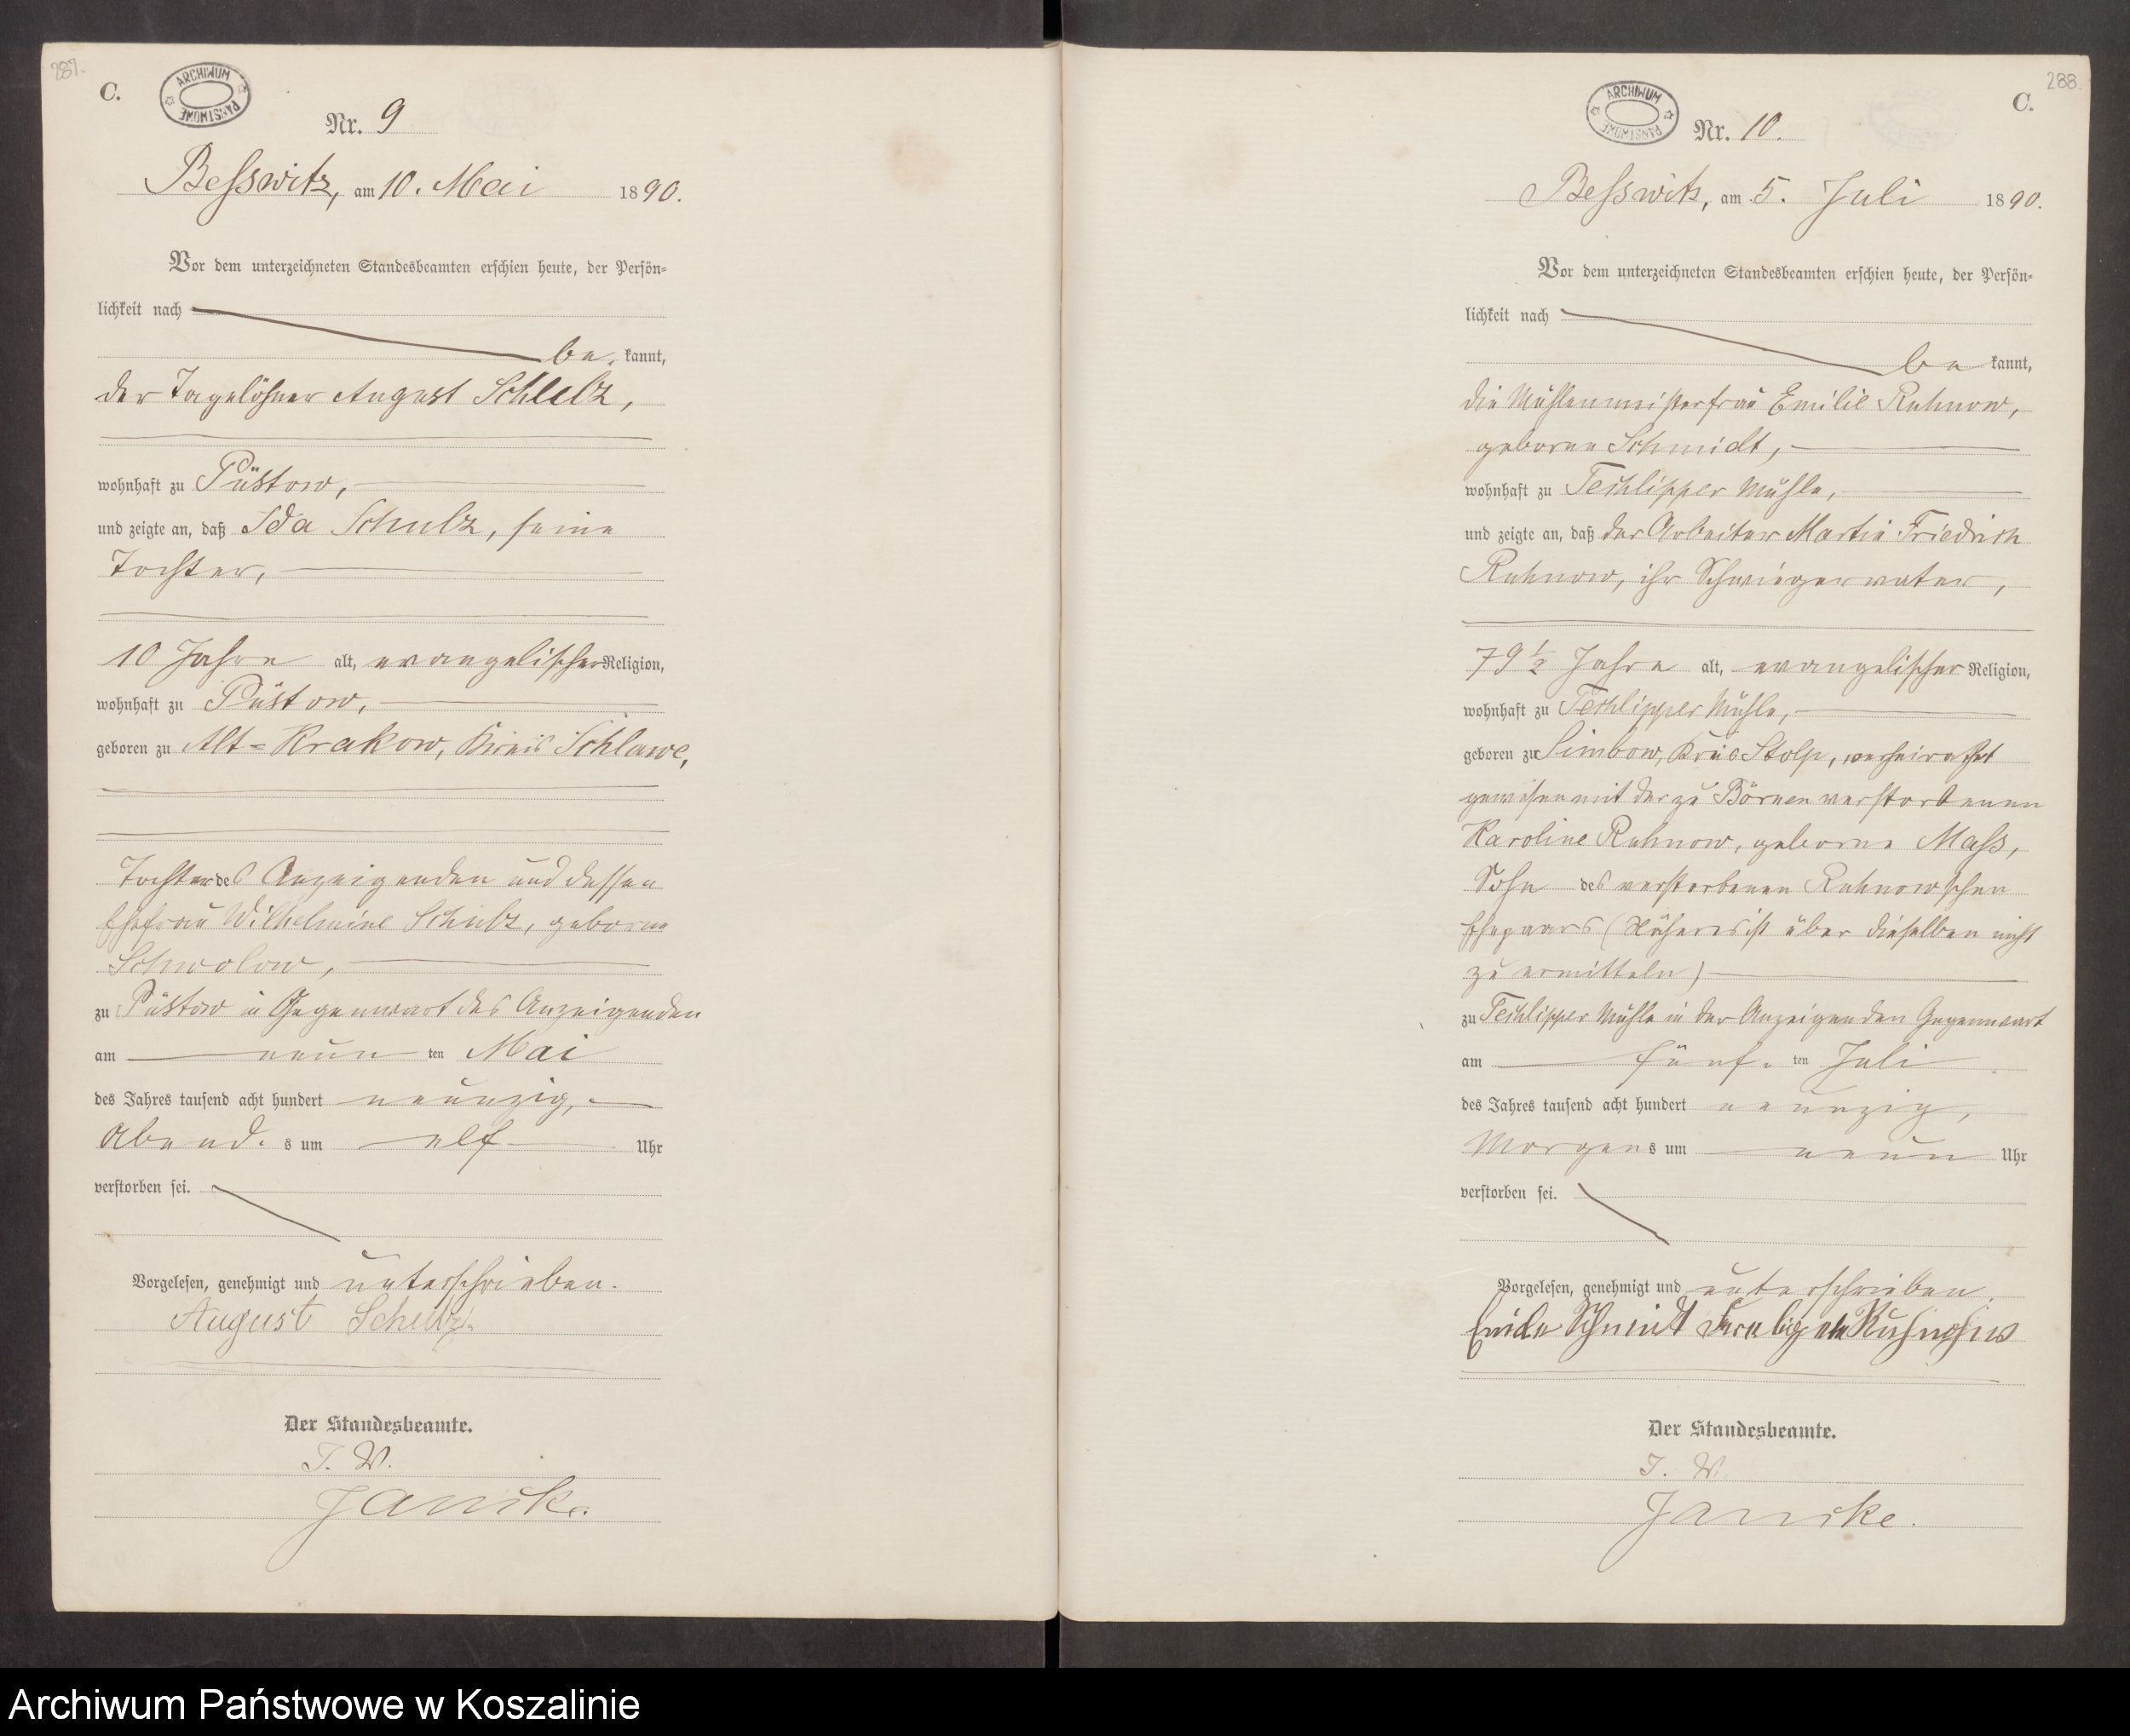 287.
C.
ARCHIWUM PAŃSTWOWE
Nr. 9
Beßwitz, am 10. Mai 1890.
Vor dem unterzeichneten Standesbeamten erschien heute, der Persön-
lichkeit nach
be kannt,
der Tagelöhner August Schulz,
wohnhaft zu Püstow,
und zeigte an, daß Ida Schulz, seine
Tochter,
10 Jahre alt, evangelischer Religion,
wohnhaft zu Püstow,
geboren zu Alt-Krakow, Kreis Schlawe,
Tochter des Anzeigenden und dessen
Ehefrau Wilhelmine Schulz, geborne
Schwolow,
zu Püstow in Gegenwart des Anzeigenden
am neun ten Mai
des Jahres tausend acht hundert neunzig,
Abend s um elf Uhr
verstorben sei.
Vorgelesen, genehmigt und unterschrieben.
August Schulz
Der Standesbeamte.
J. V.
Janike.
288.
C.
ARCHIWUM PAŃSTWOWE
Nr. 10.
Beßwitz, am 5. Juli 1890.
Vor dem unterzeichneten Standesbeamten erschien heute, der Persön-
lichkeit nach
be kannt,
die Mühlenmeisterfrau Emilie Ruhnow,
geborne Schmidt,
wohnhaft zu Techlipper Mühle,
und zeigte an, daß der Arbeiter Martin Friedrich
Ruhnow, ihr Schwiegervater,
79 1/2 Jahre alt, evangelischer Religion,
wohnhaft zu Techlipper Mühle,
geboren zu Simbow, Kreis Stolp, verheirathet
gewesen mit der zu Börnen verstorbenen
Karoline Ruhnow, geborne Maß,
Sohn des verstorbenen Ruhnowschen
Ehepaars (Näheres ist über dieselben nicht
zu ermitteln)
zu Techlipper Mühle in der Anzeigenden Gegenwart
am fünf ten Juli
des Jahres tausend acht hundert neunzig,
Morgen s um neun Uhr
verstorben sei.
Vorgelesen, genehmigt und unterschrieben.
Schmidt
Der Standesbeamte.
J. V.
Janike.
Archiwum Państwowe w Koszalinie